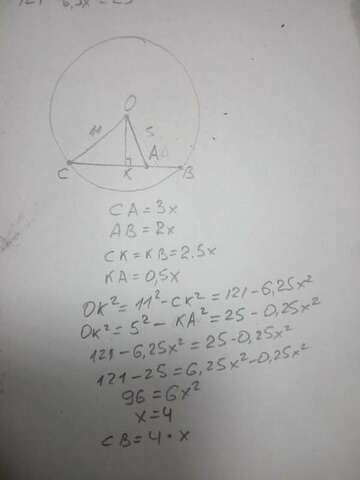 121 - 6,3x = 25
O
11
5
A
C
K
B
CA = 3x
AB = 2x
CK = KB = 2.5x
KA = 0,5x
OK² = 11² - CK² = 121 - 6,25x²
OK² = 5² - KA² = 25 - 0,25x²
121 - 6,25x² = 25 - 0,25x²
121 - 25 = 6,25x² - 0,25x²
96 = 6x²
x = 4
CB = 4 · x